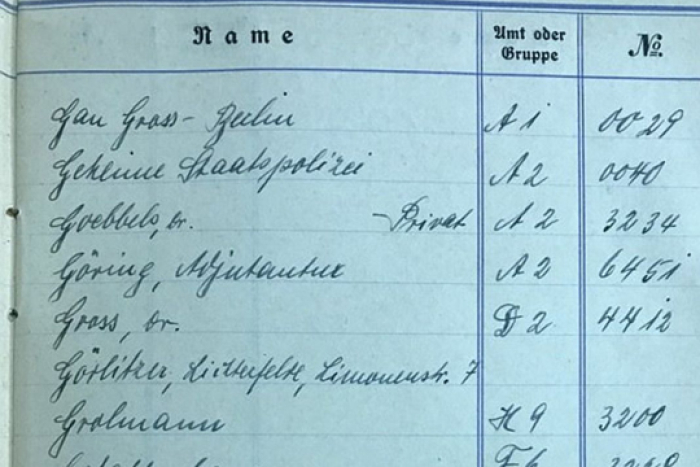 Name Amt oder Gruppe No.
Gau Gross-Berlin A 1 0029
Geheime Staatspolizei A 2 0040
Goebbels, Dr. - Privat A 2 3234
Göring, Adjutantur A 2 6451
Gross, Dr. D 2 4412
Görlitzer, Lichterfelde, Limonenstr. 7
Grolmann H 9 3200